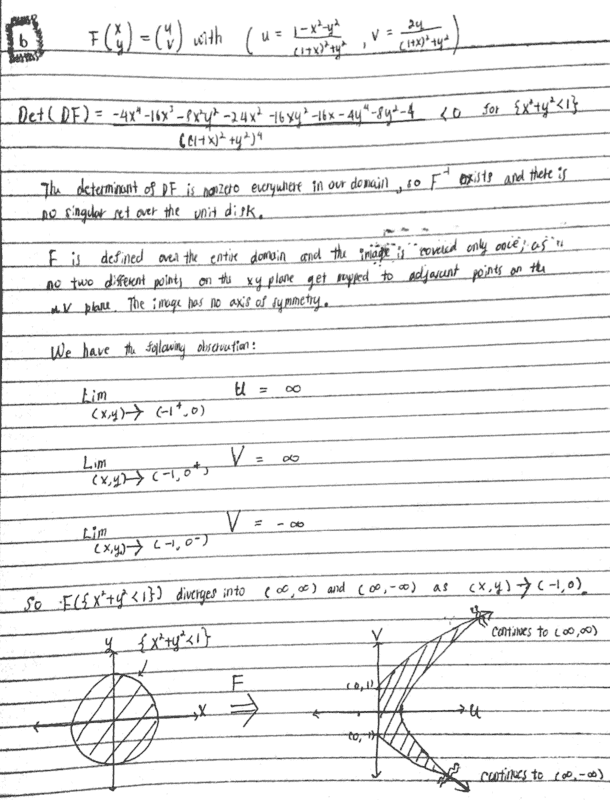 b F(x y) = (u v) with ( u = 1-x²-y² / (1+x)²+y² , v = 2y / (1+x)²+y² )
Det(DF) = -4x⁴-16x³-8x²y²-24x²-16xy²-16x-4y⁴-8y²-4 / ((1+x)²+y²)⁴ <0 for {x²+y²<1}
The determinant of DF is nonzero everywhere in our domain, so F⁻¹ exists and there is
no singular set over the unit disk.
F is defined over the entire domain and the image is "covered only once", as
no two different points on the xy plane get mapped to adjacent points on the
uV plane. The image has no axis of symmetry.
We have the following observation:
Lim (x,y)→(-1⁺,0) u = ∞
Lim (x,y)→(-1,0⁺) V = ∞
Lim (x,y)→(-1,0⁻) V = -∞
So F({x²+y²<1}) diverges into (∞,∞) and (∞,-∞) as (x,y)→(-1,0).
y {x²+y²<1}
x
F
⇒
V
continues to (∞,∞)
(0,1)
u
(0,1)
continues to (∞,-∞)